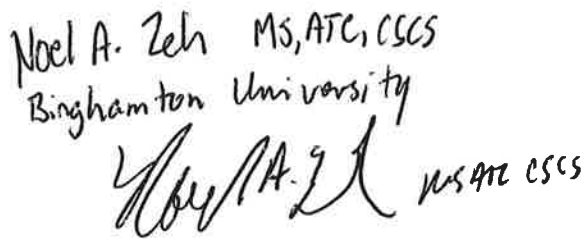 Noel A. Zeh MS, ATC, CSCS
Binghamton University
Noel A. Zeh MS ATC CSCS